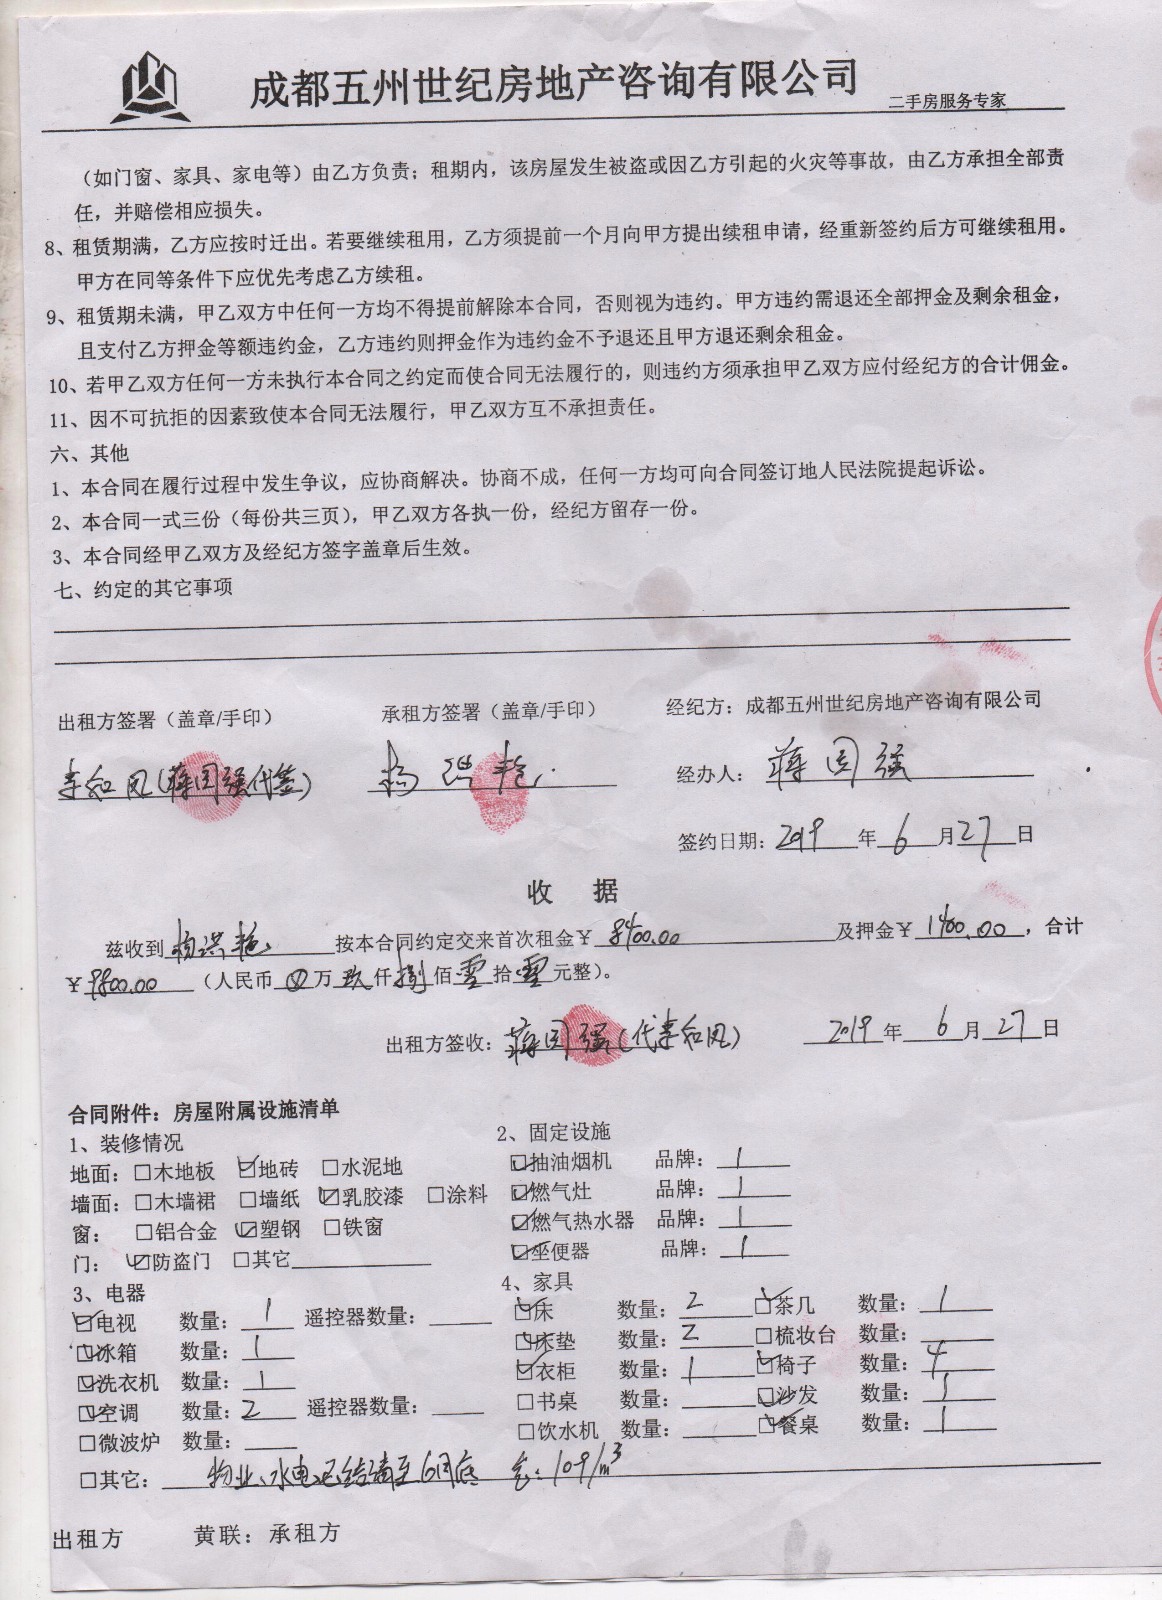 成都五州世纪房地产咨询有限公司 二手房服务专家
（如门窗、家具、家电等）由乙方负责；租期内，该房屋发生被盗或因乙方引起的火灾等事故，由乙方承担全部责
任，并赔偿相应损失。
8、租赁期满，乙方应按时迁出。若要继续租用，乙方须提前一个月向甲方提出续租申请，经重新签约后方可继续租用。
甲方在同等条件下应优先考虑乙方续租。
9、租赁期未满，甲乙双方中任何一方均不得提前解除本合同，否则视为违约。甲方违约需退还全部押金及剩余租金，
且支付乙方押金等额违约金，乙方违约则押金作为违约金不予退还且甲方退还剩余租金。
10、若甲乙双方任何一方未执行本合同之约定而使合同无法履行的，则违约方须承担甲乙双方应付经纪方的合计佣金。
11、因不可抗拒的因素致使本合同无法履行，甲乙双方互不承担责任。
六、其他
1、本合同在履行过程中发生争议，应协商解决。协商不成，任何一方均可向合同签订地人民法院提起诉讼。
2、本合同一式三份（每份共三页），甲乙双方各执一份，经纪方留存一份。
3、本合同经甲乙双方及经纪方签字盖章后生效。
七、约定的其它事项
出租方签署（盖章/手印） 承租方签署（盖章/手印） 经纪方：成都五州世纪房地产咨询有限公司
李和凤(蒋国强代签) 杨洪艳 经办人：蒋国强
签约日期：2019年6月27日
收 据
兹收到杨洪艳按本合同约定交来首次租金￥8400.00及押金￥1400.00，合计
￥9800.00（人民币 万玖仟捌佰零拾零元整）。
出租方签收：蒋国强(代李和凤) 2019年6月27日
合同附件：房屋附属设施清单
1、装修情况 2、固定设施
地面：□木地板 ☑地砖 □水泥地 ☑抽油烟机 品牌：1
墙面：□木墙裙 □墙纸 ☑乳胶漆 □涂料 ☑燃气灶 品牌：1
窗： □铝合金 ☑塑钢 □铁窗 ☑燃气热水器 品牌：1
门： ☑防盗门 □其它 ☑坐便器 品牌：1
3、电器 4、家具
☑电视 数量：1 遥控器数量： ☑床 数量：2 ☑茶几 数量：1
☑冰箱 数量：1 ☑床垫 数量：2 □梳妆台 数量：
☑洗衣机 数量：1 ☑衣柜 数量：1 ☑椅子 数量：4
☑空调 数量：2 遥控器数量： □书桌 数量： ☑沙发 数量：1
□微波炉 数量： □饮水机 数量： ☑餐桌 数量：1
□其它： 物业、水电已结清至6月底 气：109/m³
出租方 黄联：承租方